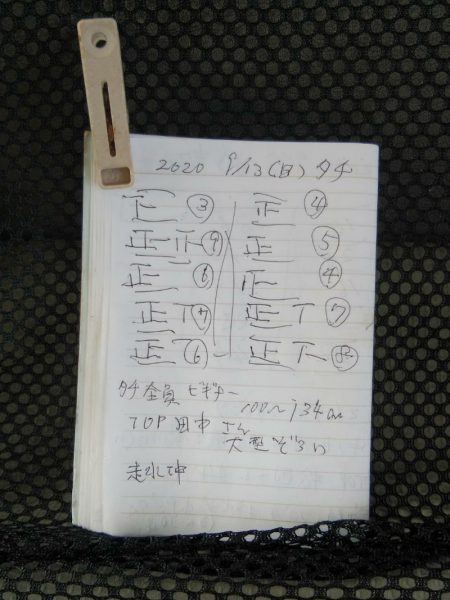 2020 9/13(日) タチ
下 ③ 正 ④
正 正 ⑨ 正 ⑤
正 ⑥ 正 ④
正 丅 ⑦ 正 丅 ⑦
正 ⑥ 正 下 ⑧
タチ 全員 ビギナー
100〜134cm
TOP 田中 さん
大型ぞろい
走水沖